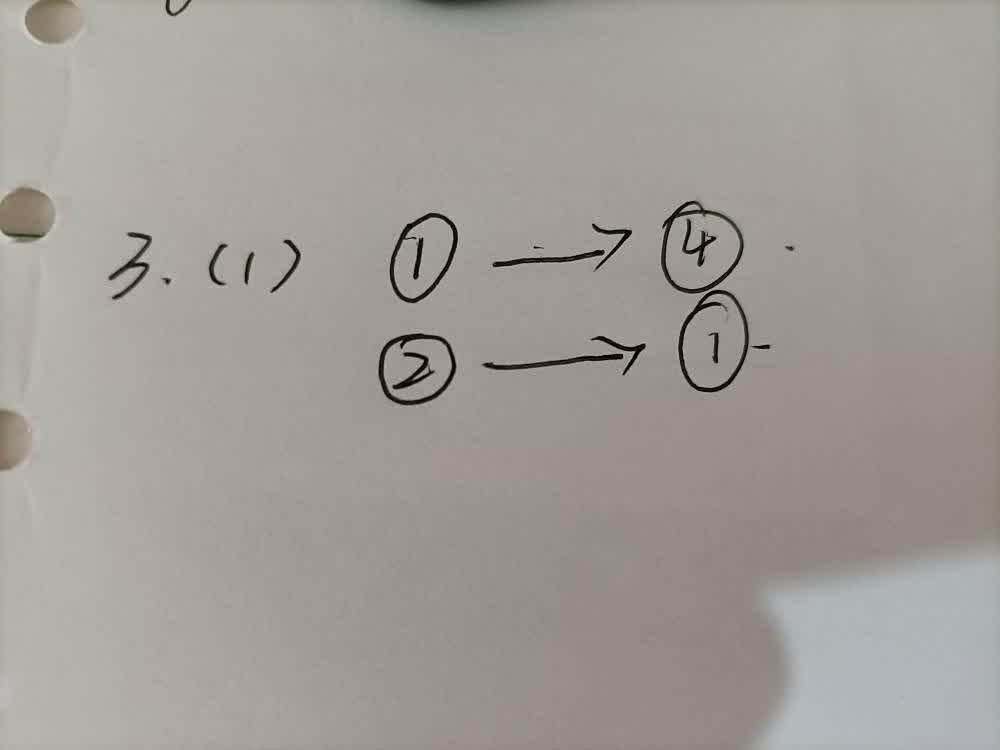 3. (1) ① → ④ .
② → ① -